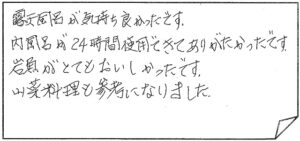 露天風呂が気持ち良かったです。
内風呂が24時間使用できてありがたかったです。
岩魚がとてもおいしかったです。
山菜料理も参考になりました。